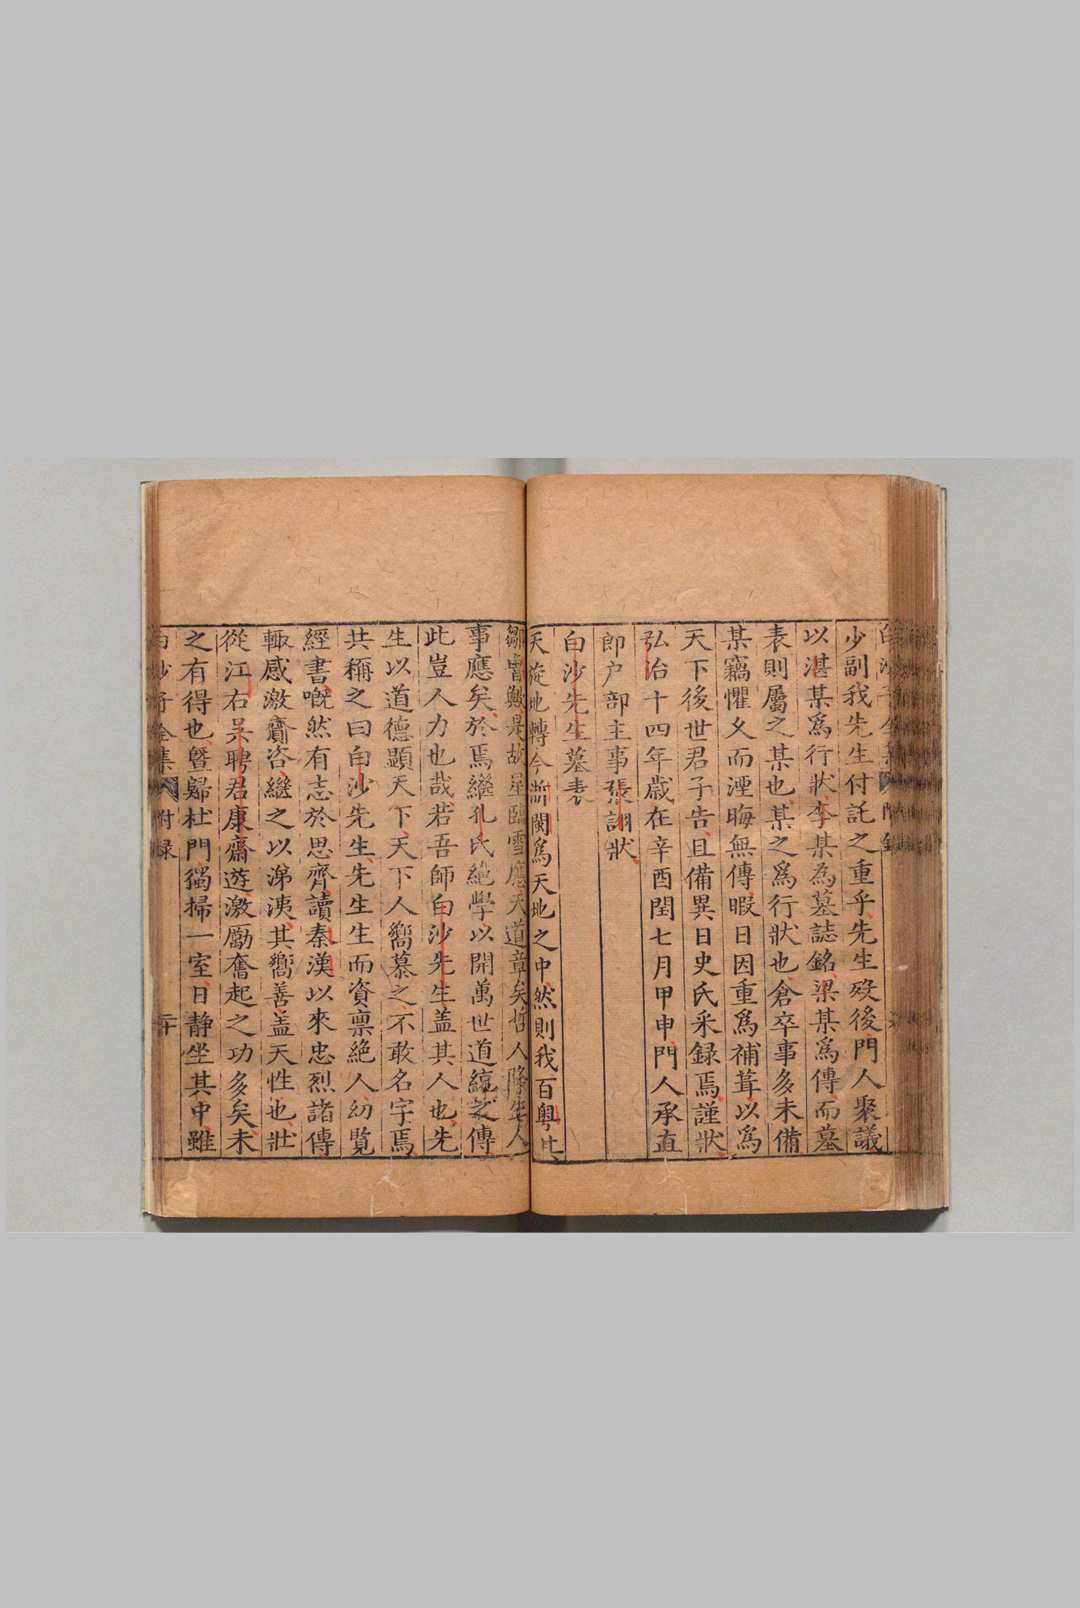 少副我先生付託之重乎先生歿後門人聚議
以湛某爲行狀李某為墓誌銘梁某爲傳而墓
表則屬之某也某之爲行狀也倉卒事多未備
某竊懼久而湮晦無傳暇日因重爲補葺以爲
天下後世君子告且備異日史氏采録焉謹狀
弘治十四年歲在辛酉閏七月甲申門人承直
郎户部主事張詡狀
白沙先生墓表
天旋地轉今浙閩爲天地之中然則我百粤其
鄒魯歟是故星臨雪應天道章矣哲人降生人
事應矣於焉繼孔氏絶學以開萬世道統之傳
此豈人力也哉若吾師白沙先生盖其人也先
生以道德顯天下天下人嚮慕之不敢名字焉
共稱之曰白沙先生先生生而資禀絶人幼覽
經書嘅然有志於思齊讀秦漢以來忠烈諸傳
輙感激賷咨繼之以涕洟其嚮善盖天性也壯
從江右吴聘君康齋遊激勵奮起之功多矣未
之有得也曁歸杜門獨掃一室日静坐其中雖
白沙子全集 附録